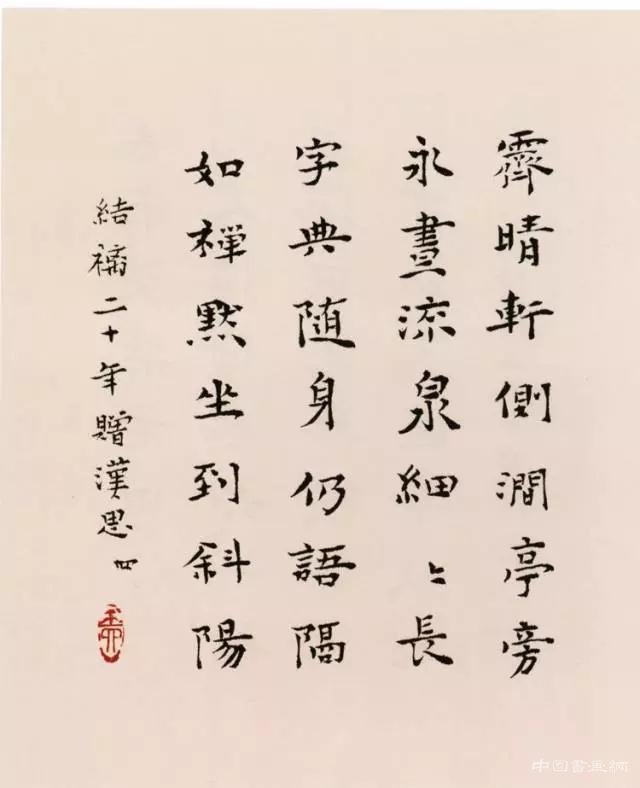 霽晴軒側澗亭旁
永晝流泉細〻長
字典随身仍語隔
如禪默坐到斜陽
結褵二十年贈漢思 四
中国書画網